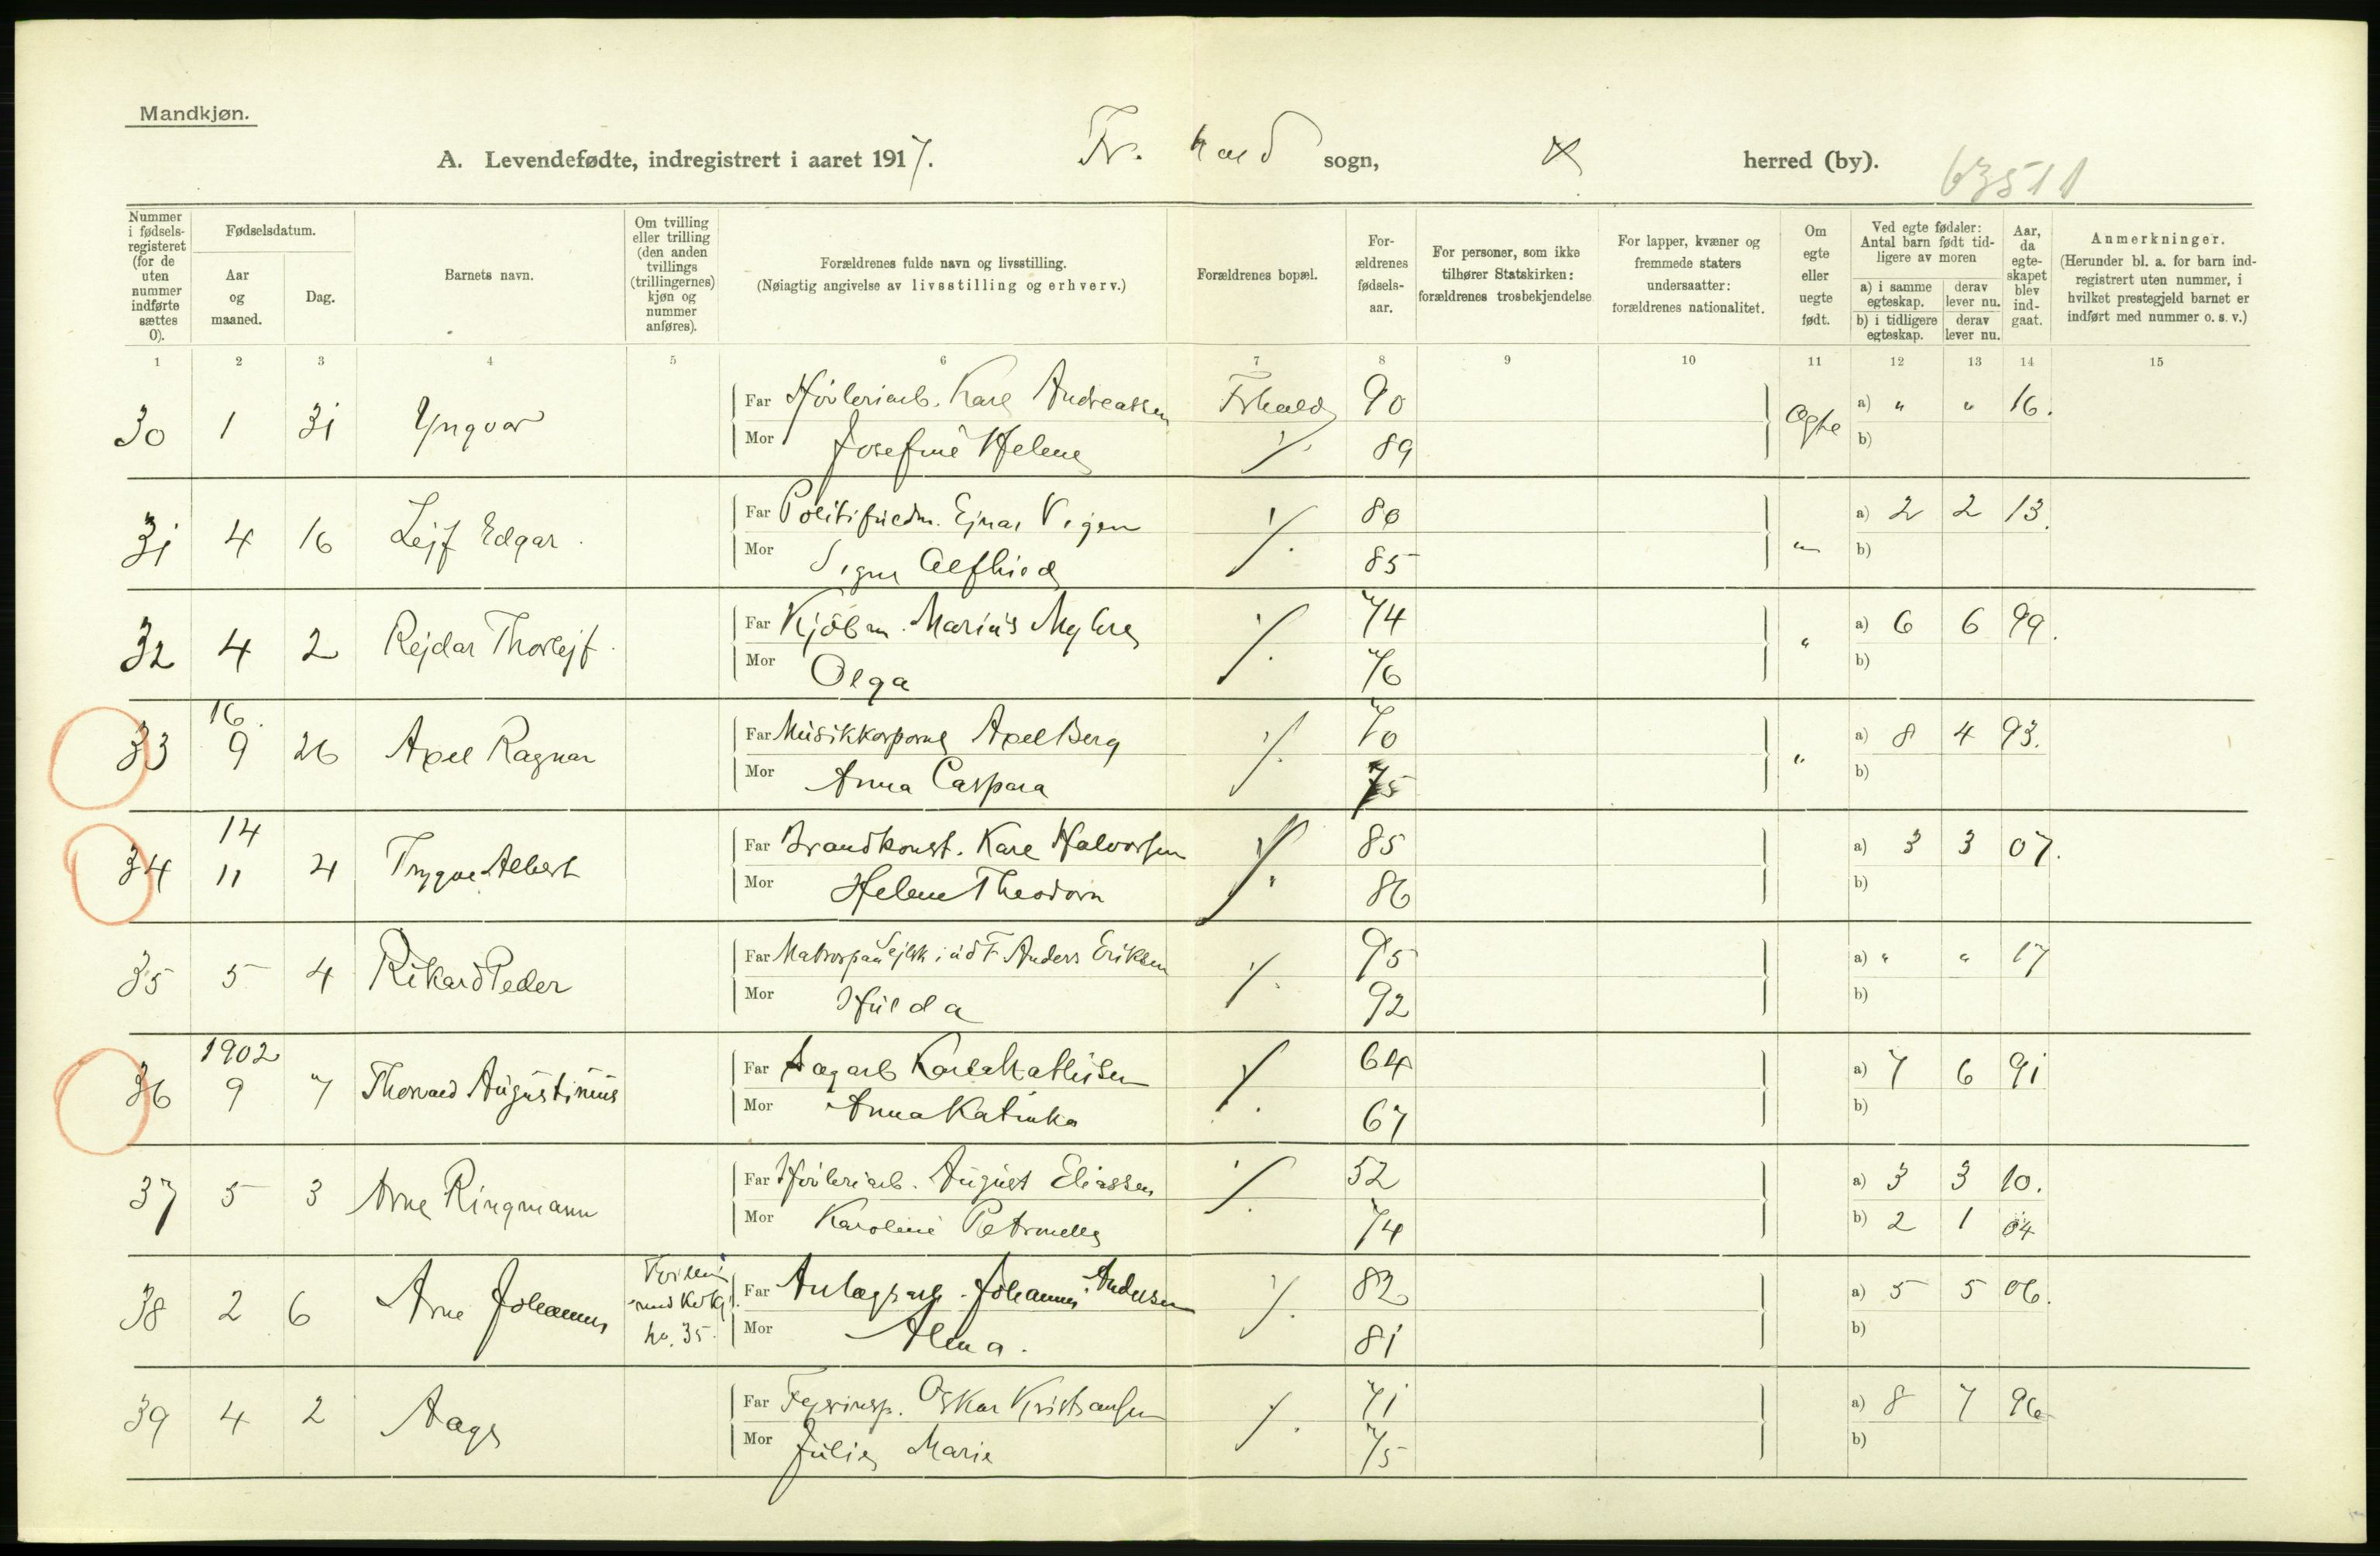 Mandkjøn.
A. Levendefødte, indregistrert i aaret 1917. Fr. hald sogn, herred (by). 63511
Nummer i fødselsregisteret (for de uten nummer indførte sættes 0).
Fødselsdatum.
Aar og maaned.
Dag.
Barnets navn.
Om tvilling eller trilling (den anden tvillings (trillingernes) kjøn og nummer anføres).
Forældrenes fulde navn og livsstilling.
(Nøiagtig angivelse av livsstilling og erhverv.)
Forældrenes bopæl.
Forældrenes fødselsaar.
For personer, som ikke tilhører Statskirken: forældrenes trosbekjendelse
For lapper, kvæner og fremmede staters undersaatter: forældrenes nationalitet.
Om egte eller uegte født.
Ved egte fødsler: Antal barn født tidligere av moren
a) i samme egteskap. derav lever nu.
b) i tidligere egteskap. derav lever nu.
Aar, da egteskapet blev indgaat.
Anmerkninger.
(Herunder bl. a. for barn indregistrert uten nummer, i hvilket prestegjeld barnet er indført med nummer o. s. v.)
1 2 3 4 5 6 7 8 9 10 11 12 13 14 15
30 1 31 Yngvar Far Høvleriarb. Karl Andreassen Frhald 90 Egte a) " " 16.
Mor Josefine Helene ./. 89 b)
31 4 16 Lejf Edgar. Far Ejnar Vigen ./. 80 " a) 2 2 13.
Mor Signe Alfhild 85 b)
32 4 2 Rejdar Thorlejf. Far Kjøbm. Marius Myhre ./. 74 " a) 6 6 99.
Mor Olga 76 b)
33 16. 9 26 Axel Ragnar Far Axel Berg ./. 70 " a) 8 4 93.
Mor Anna Caspara 75 b)
34 14 11 4 Trygve Albert Far Brandkonst. Karl Halvorsen ./. 85 a) 3 3 07.
Mor Helene Theodora 86 b)
35 5 4 Rikard Peder Far Anders Eriksen ./. 95 a) " " 17
Mor Hulda 92 b)
36 1902 9 7 Thorvald Augustinius Far Karl Mathisen ./. 64 a) 7 6 91
Mor Anna Katinka 67 b)
37 5 3 Arne Ringmann Far Høvleriarb. August Eliassen ./. 52 a) 3 3 10.
Mor Karoline Petronelle 74 b) 2 1 04
38 2 6 Arne Johannes Tvilling med Kvk. no. 35. Far Anlægsarb. Johannes Andersen ./. 82 a) 5 5 06.
Mor Alma. 81 b)
39 4 2 Aage Far Oskar Kristiansen ./. 71 a) 8 7 96
Mor Julie Marie 75 b)